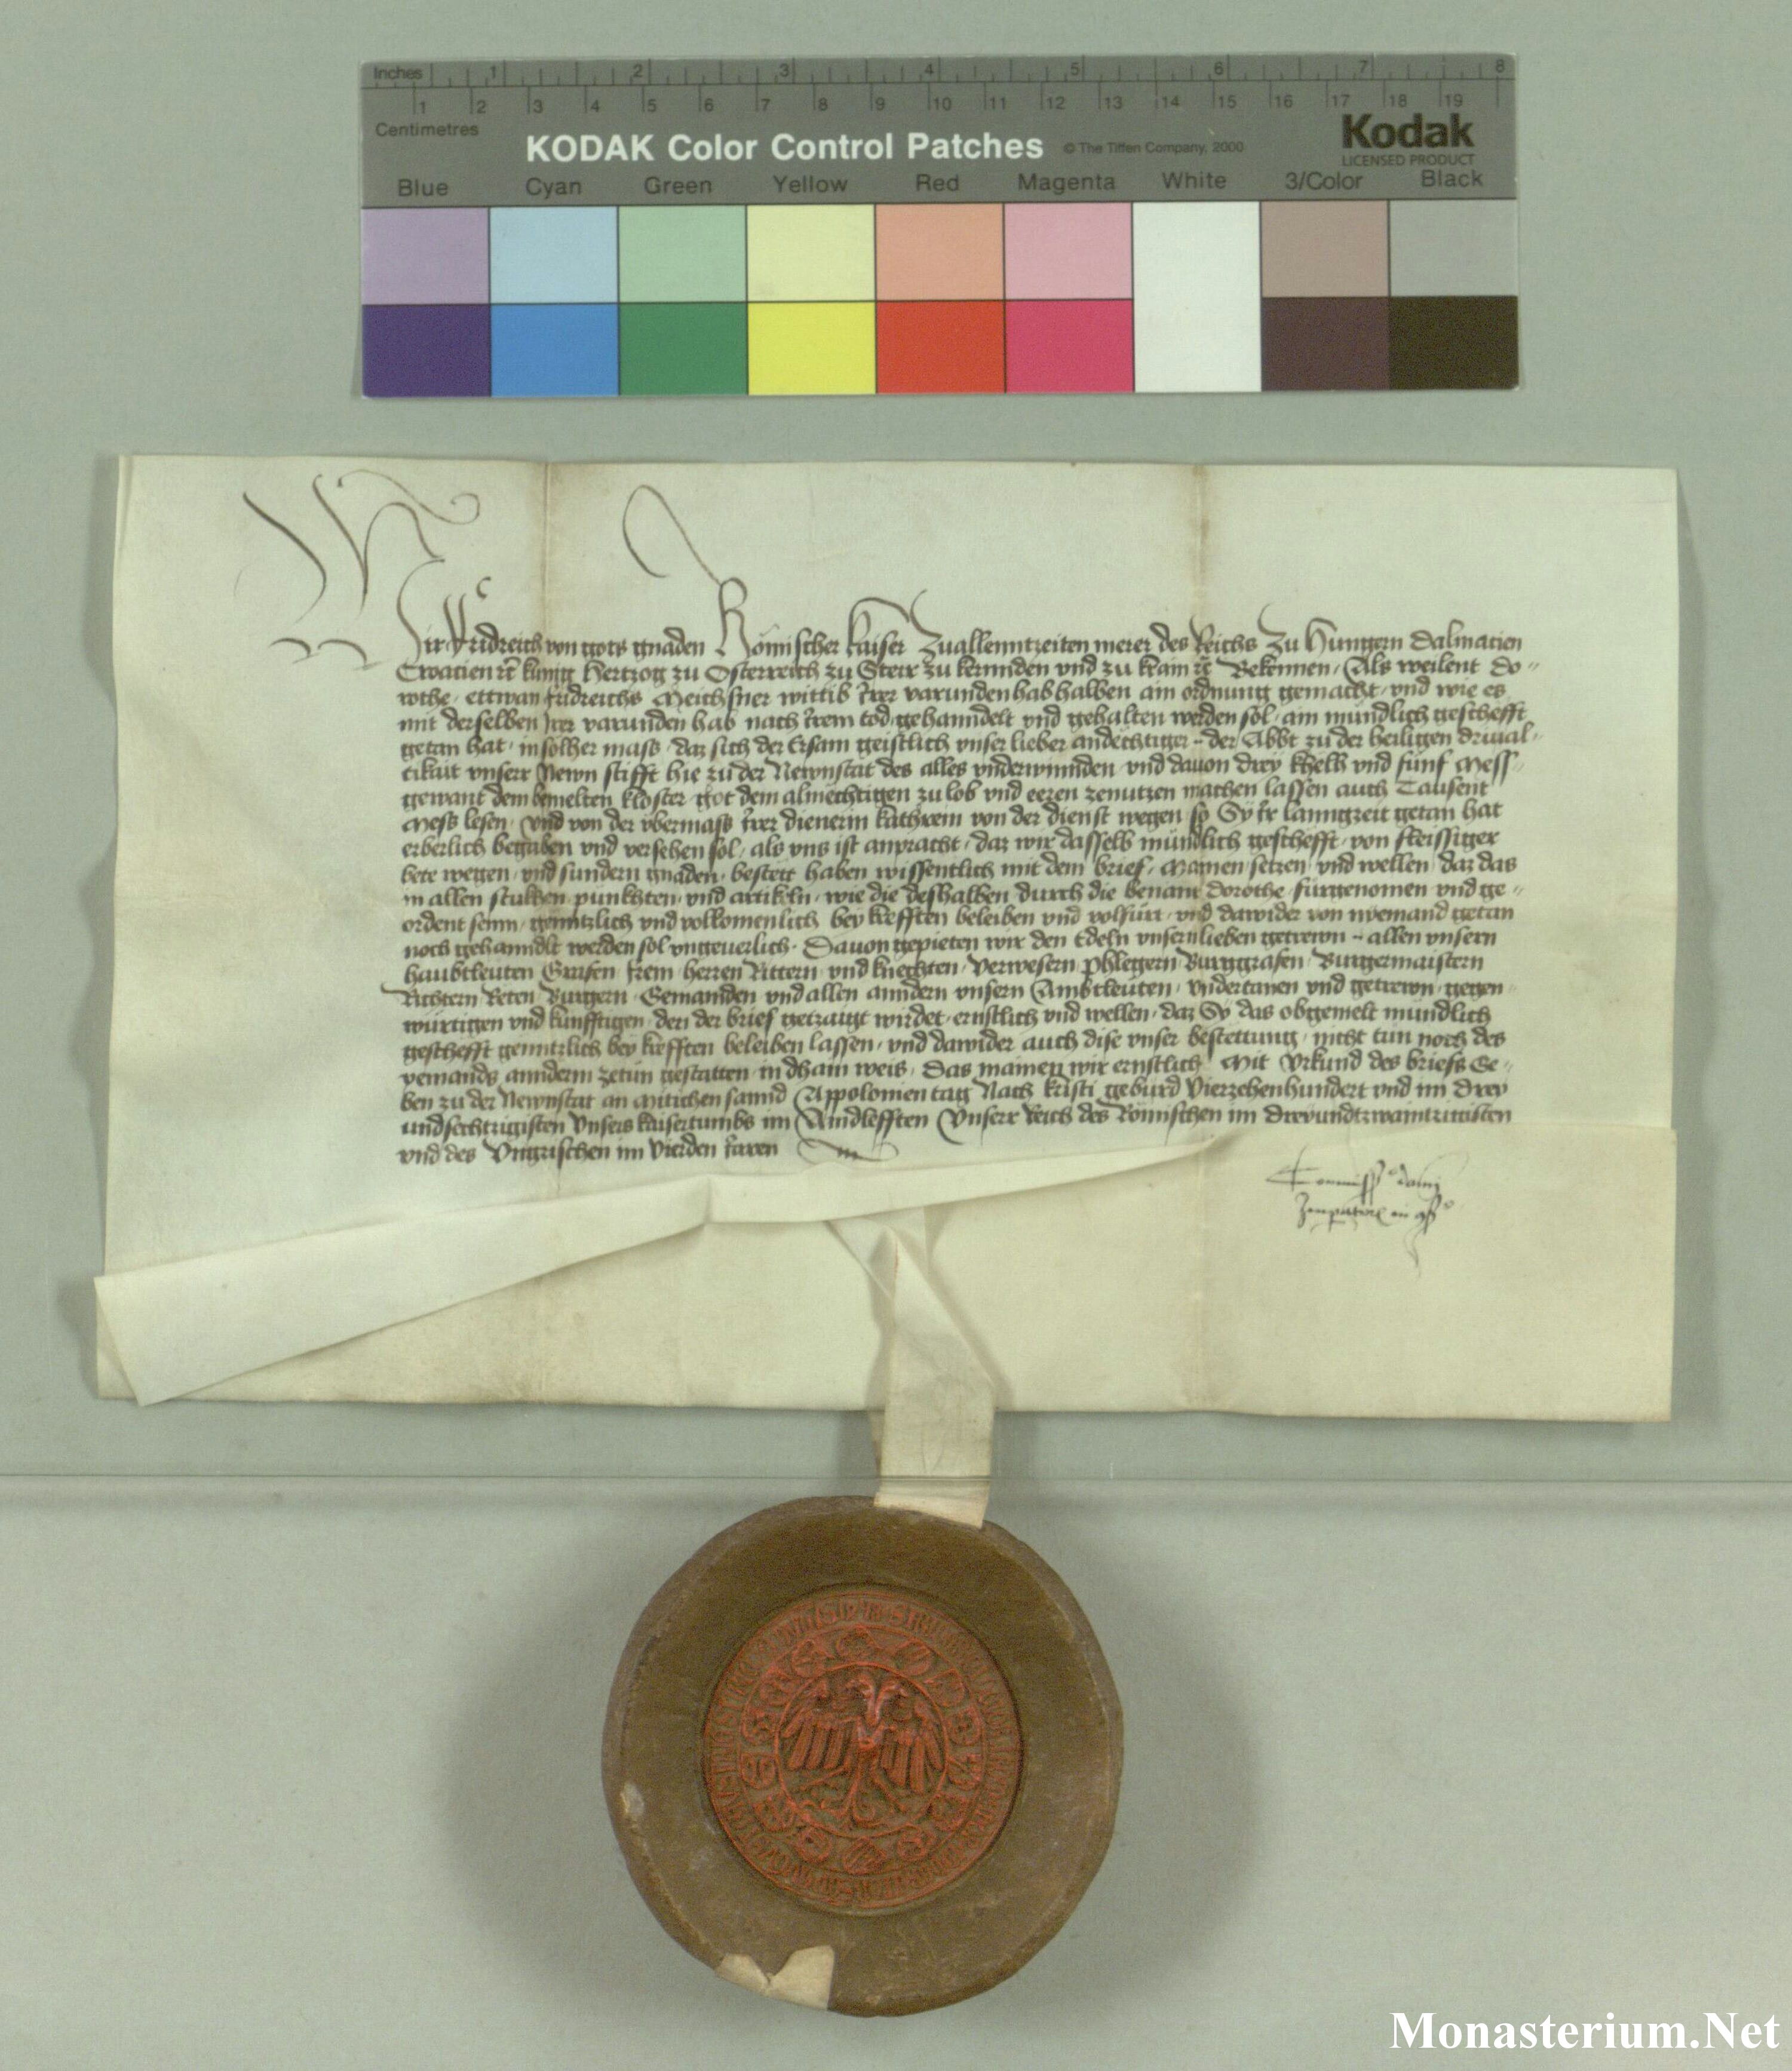 Inches 1 2 3 4 5 6 7 8
1 2 3 4 5 6 7 8 9 10 11 12 13 14 15 16 17 18 19
Centimetres
KODAK Color Control Patches © The Tiffen Company, 2000 Kodak
LICENSED PRODUCT
Blue Cyan Green Yellow Red Magenta White 3/Color Black
Wir Fridreich von gots gnaden Römischer kaiser Zuallenntzeiten merer des Reichs Zu Hungern Dalmacien
Croacien ꝛc̄ kunig Hertzog zu Osterreich zu Steir zu kernnden vnd zu krain ꝛc̄ Bekennen / Als weilent Do-
rothe / ettwan Fridreichs Meichsner wittib Irer varunden hab halben ain ordnung gemacht / vnd wie es
mit derselben Irer varunden hab nach Irem tod / gehanndelt vnd gehalten werden sol / ain mundlich geschefft
getan hat / in solher mass / daz sich der Ersam geistlich vnser lieber andechtiger .. der Abbt zu der heiligen driual-
tikait vnserr Newn stifft hie zu der Newnstat des alles vnderwinnden vnd dauon drey khelh vnd fünf Mess-
gewant dem bemelten kloster got dem almechtigen zu lob vnd eeren zenutzen machen lassen auch Tausent
Mess lesen / vnd von der vbermass Irer dienerin kathrein von der dienst wegen so Sy Ir lanngzeit getan hat
erberlich begaben vnd versehen sol / als vns ist anpracht / daz wir dasselb mündlich geschefft / von fleissiger
bete wegen / vnd sundern gnaden / bestett haben wissentlich mit dem brief / Mainen setzen vnd wellen / daz das
in allen stukhen punkhten vnd artikeln / wie die deshalben durch die benant Dorothe fürgenomen vnd ge-
ordent sein / genntzlich vnd volkomenlich bey krefften beleiben vnd volfürt / vnd dawider von nyemand getan
noch gehanndlt werden sol vngeuerlich. Dauon gepieten wir den Edeln vnsern lieben getrewn .. allen vnsern
haubtleuten Grafen frein herren Rittern vnd knechten / Verwesern phlegern Burggrafen / Burgermaistern
Richtern Reten Burgern / Gemainden vnd allen anndern vnsern Ambtleuten / vndertanen vnd getrewn / gegen-
würtigen vnd kunfftigen / den der brief getzaigt wirdet / ernstlich vnd wellen / daz Sy das obgemelt mündlich
geschefft genntzlich bey krefften beleiben lassen / vnd dawider auch dise vnser bestettung / nicht tun noch des
yemands annderm zetun gestatten in dhain weis / Das mainen wir ernstlich Mit Vrkund des briefs Ge-
ben zu der Newnstat an Mitichen sannd Appolonien tag Nach kristi geburd Vierzehenhundert vnd im Drey
undsechtzigisten Vnsers kaisertumbs im Aindlefften Vnserr Reich des Römischen im Dreyundtzwaintzigisten
vnd des Vngrischen im Vierden Iaren
Commissio domini
Imperatoris in
Monasterium.Net